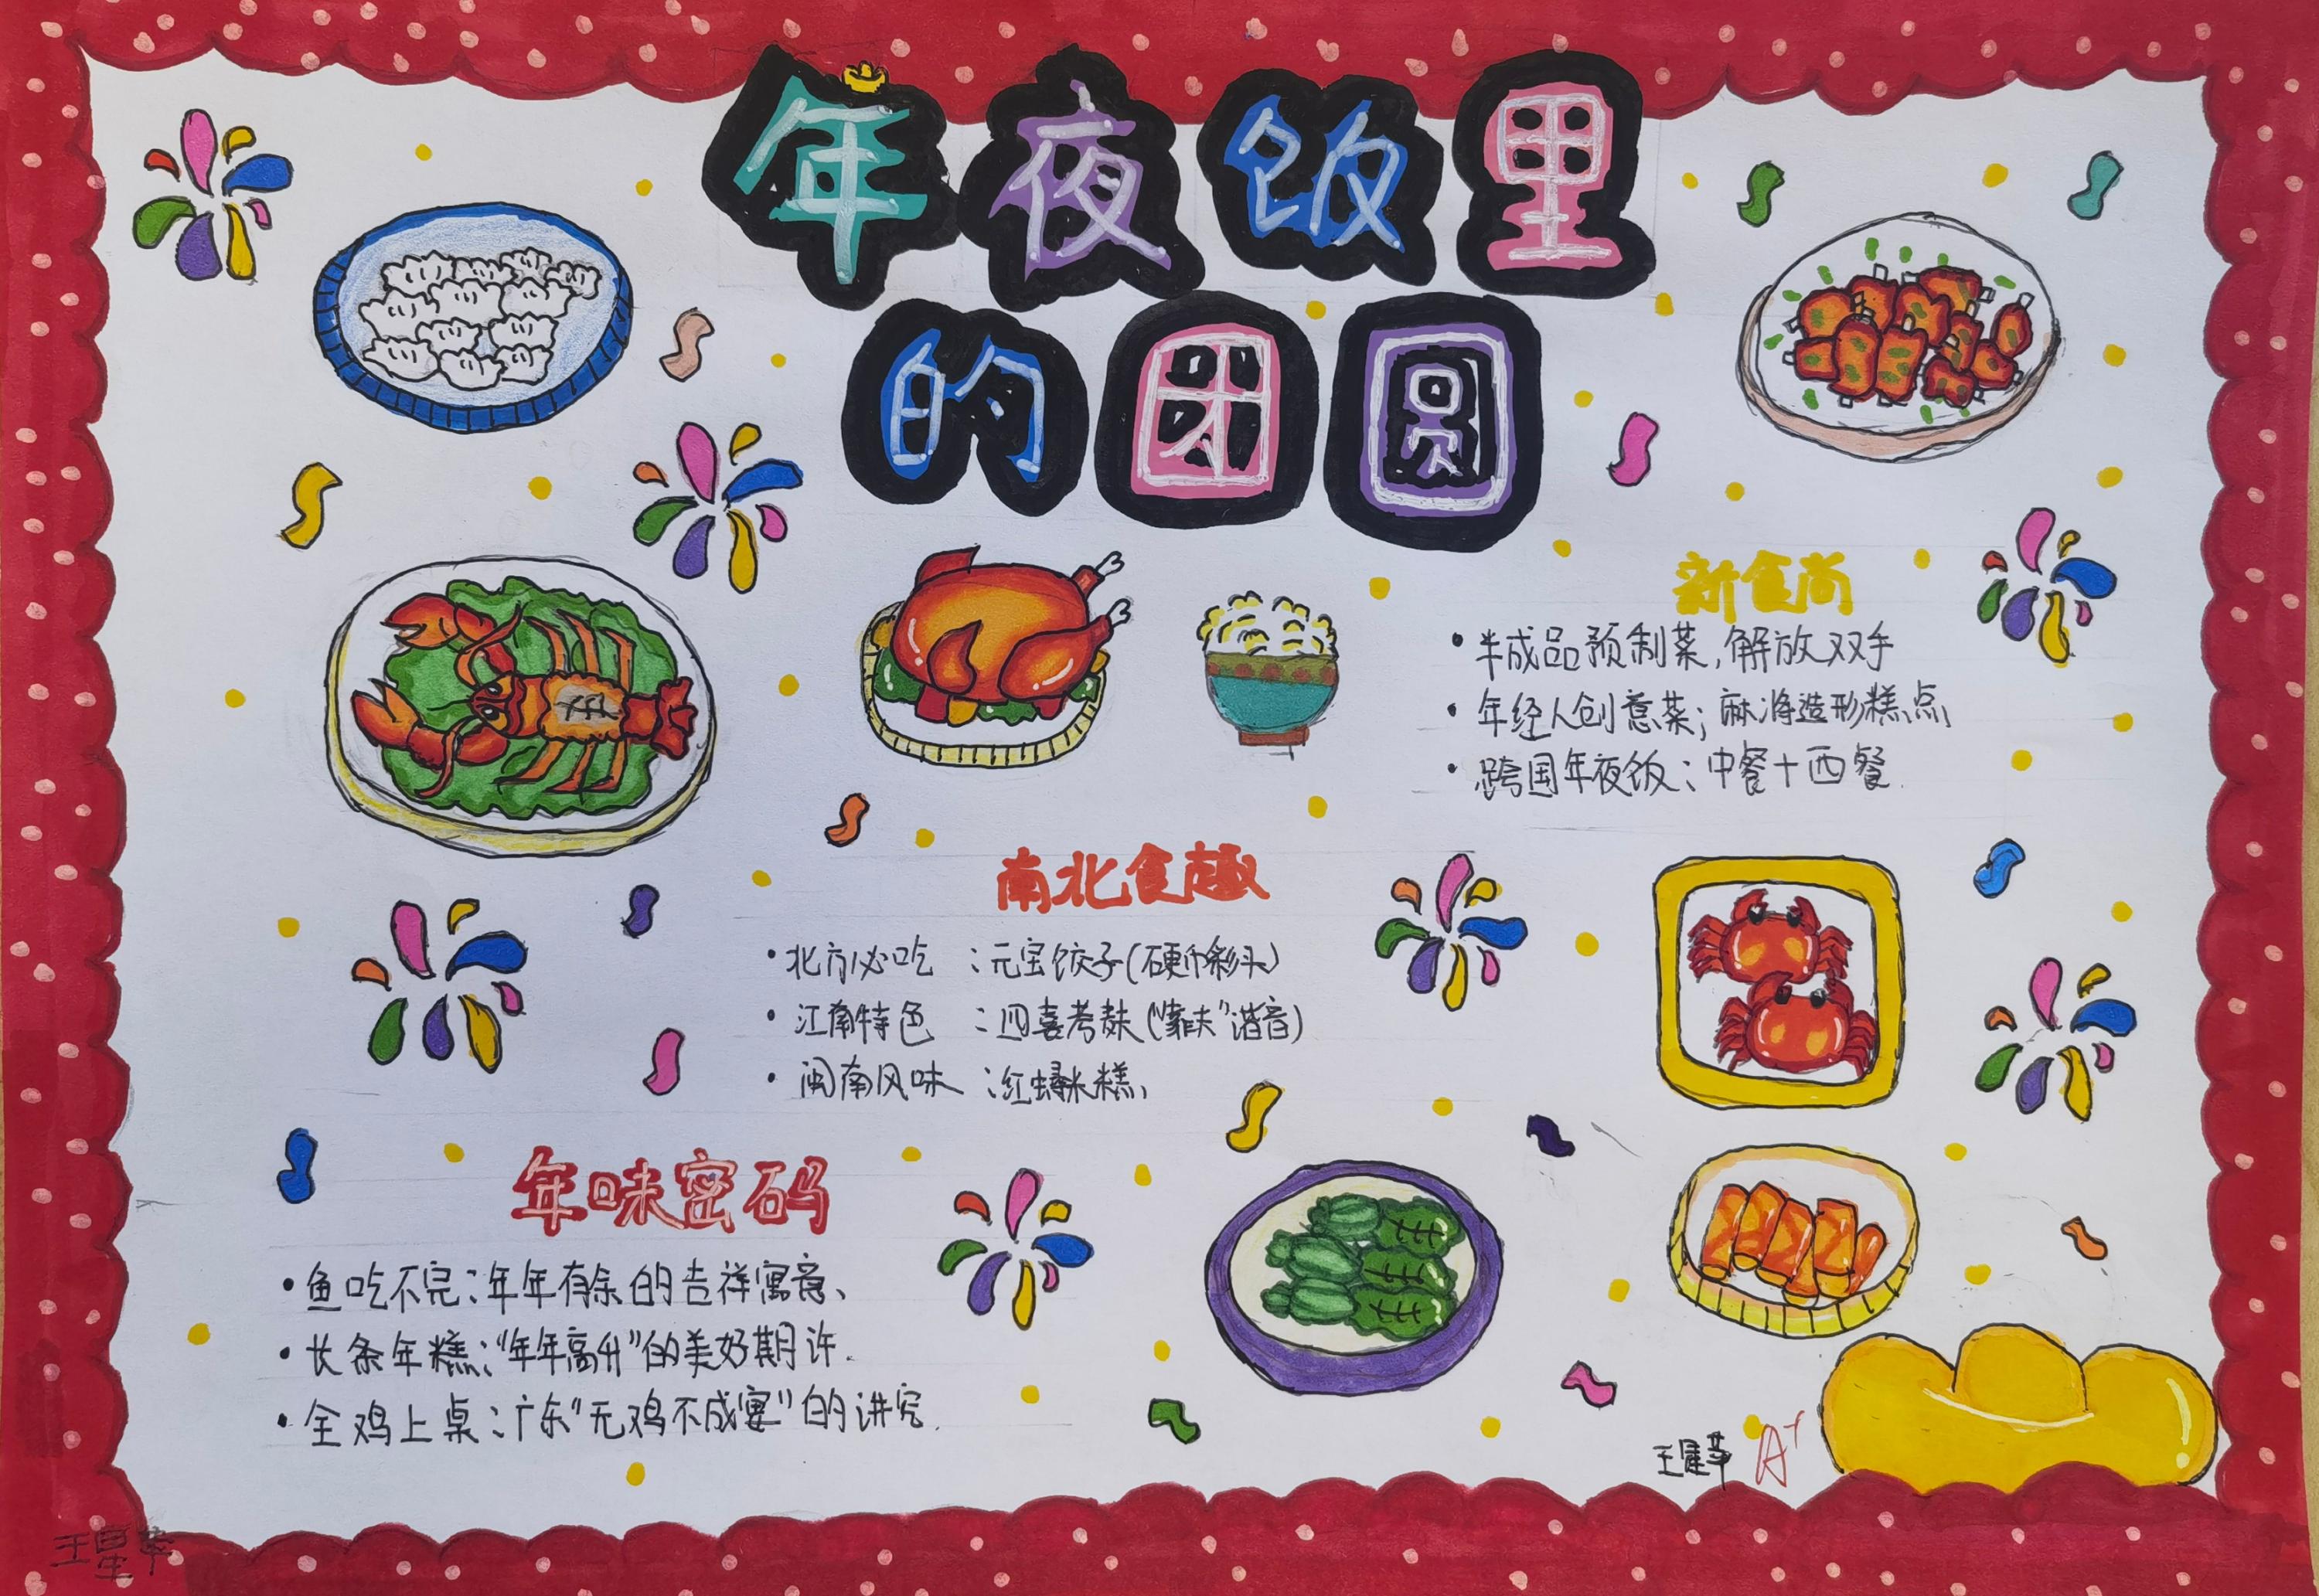 年夜饭里
的团圆
新食尚
• 半成品预制菜,解放双手
• 年经人创意菜;麻将造形糕点
• 跨国年夜饭:中餐+西餐.
南北食趣
• 北方必吃 :元宝饺子(硬币彩头)
• 江南特色 :四喜考麸("靠夫"谐音)
• 闽南风味 :红蟳米糕
年味密码
• 鱼吃不完:年年有余的吉祥寓意、
• 长条年糕:"年年高升"的美好期许.
• 全鸡上桌:广东"无鸡不成宴"的讲究.
王星苹 A+
王星苹